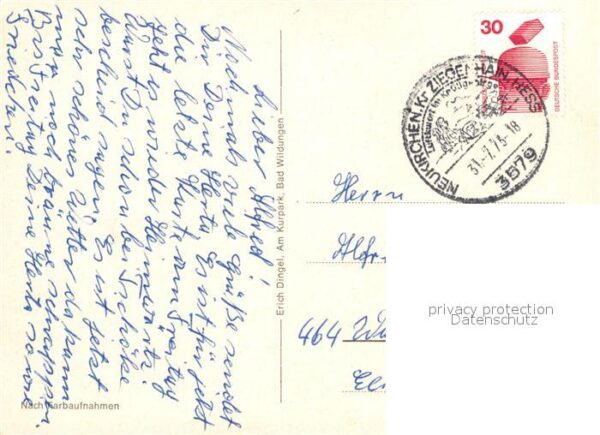 Lieber Alfred!
Nochmals viele Grüße sendet
Dir Deine Herta. Es ist für jetzt
die letzte Karte am Freitag
geht es wieder Heimwärts.
Wirst Du schon bei
bescheid sagen. Es ist jetzt
sehr schönes Wetter da kann
man noch bräune schnappen.
Bis Freitag Deine Herta sowie
Nach Farbaufnahmen
Erich Dingel, Am Kurpark, Bad Wildungen
30
DEUTSCHE BUNDESPOST
NEUKIRCHEN, Kr ZIEGENHAIN, HESS
Luftkurort im Knüllgebirge
31.-7.73-18
3579
Herrn
Alfr
464 W
El
privacy protection
Datenschutz